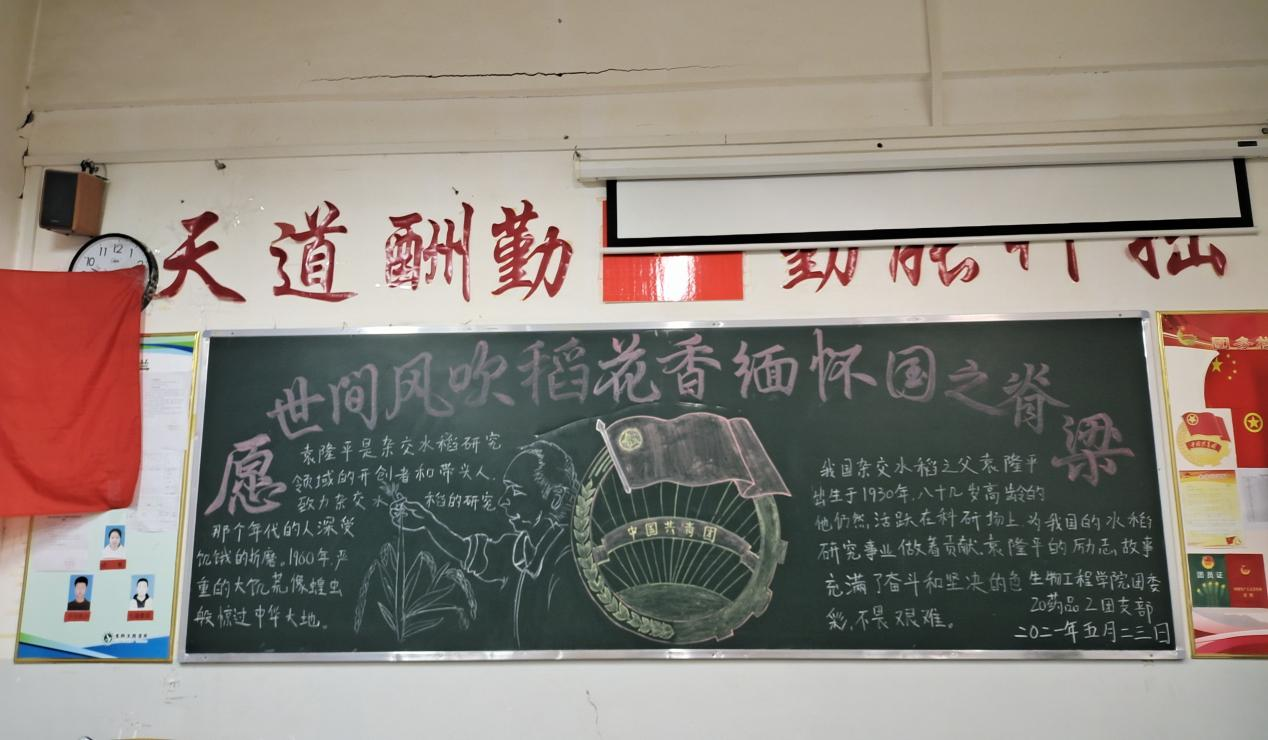 天道酬勤
勤能补拙
愿世间风吹稻花香缅怀国之脊梁
袁隆平是杂交水稻研究
领域的开创者和带头人,
致力杂交水稻的研究
那个年代的人深受
饥饿的折磨。1960年,严
重的大饥荒像蝗虫
般惊过中华大地。
中国共青团
我国杂交水稻之父袁隆平
出生于1930年,八十几岁高龄的
他仍然活跃在科研场上,为我国的水稻
研究事业做着贡献.袁隆平的励志故事
充满了奋斗和坚决的色
彩,不畏艰难。
生物工程学院团委
20药品2团支部
二〇二一年五月二三日
团员证